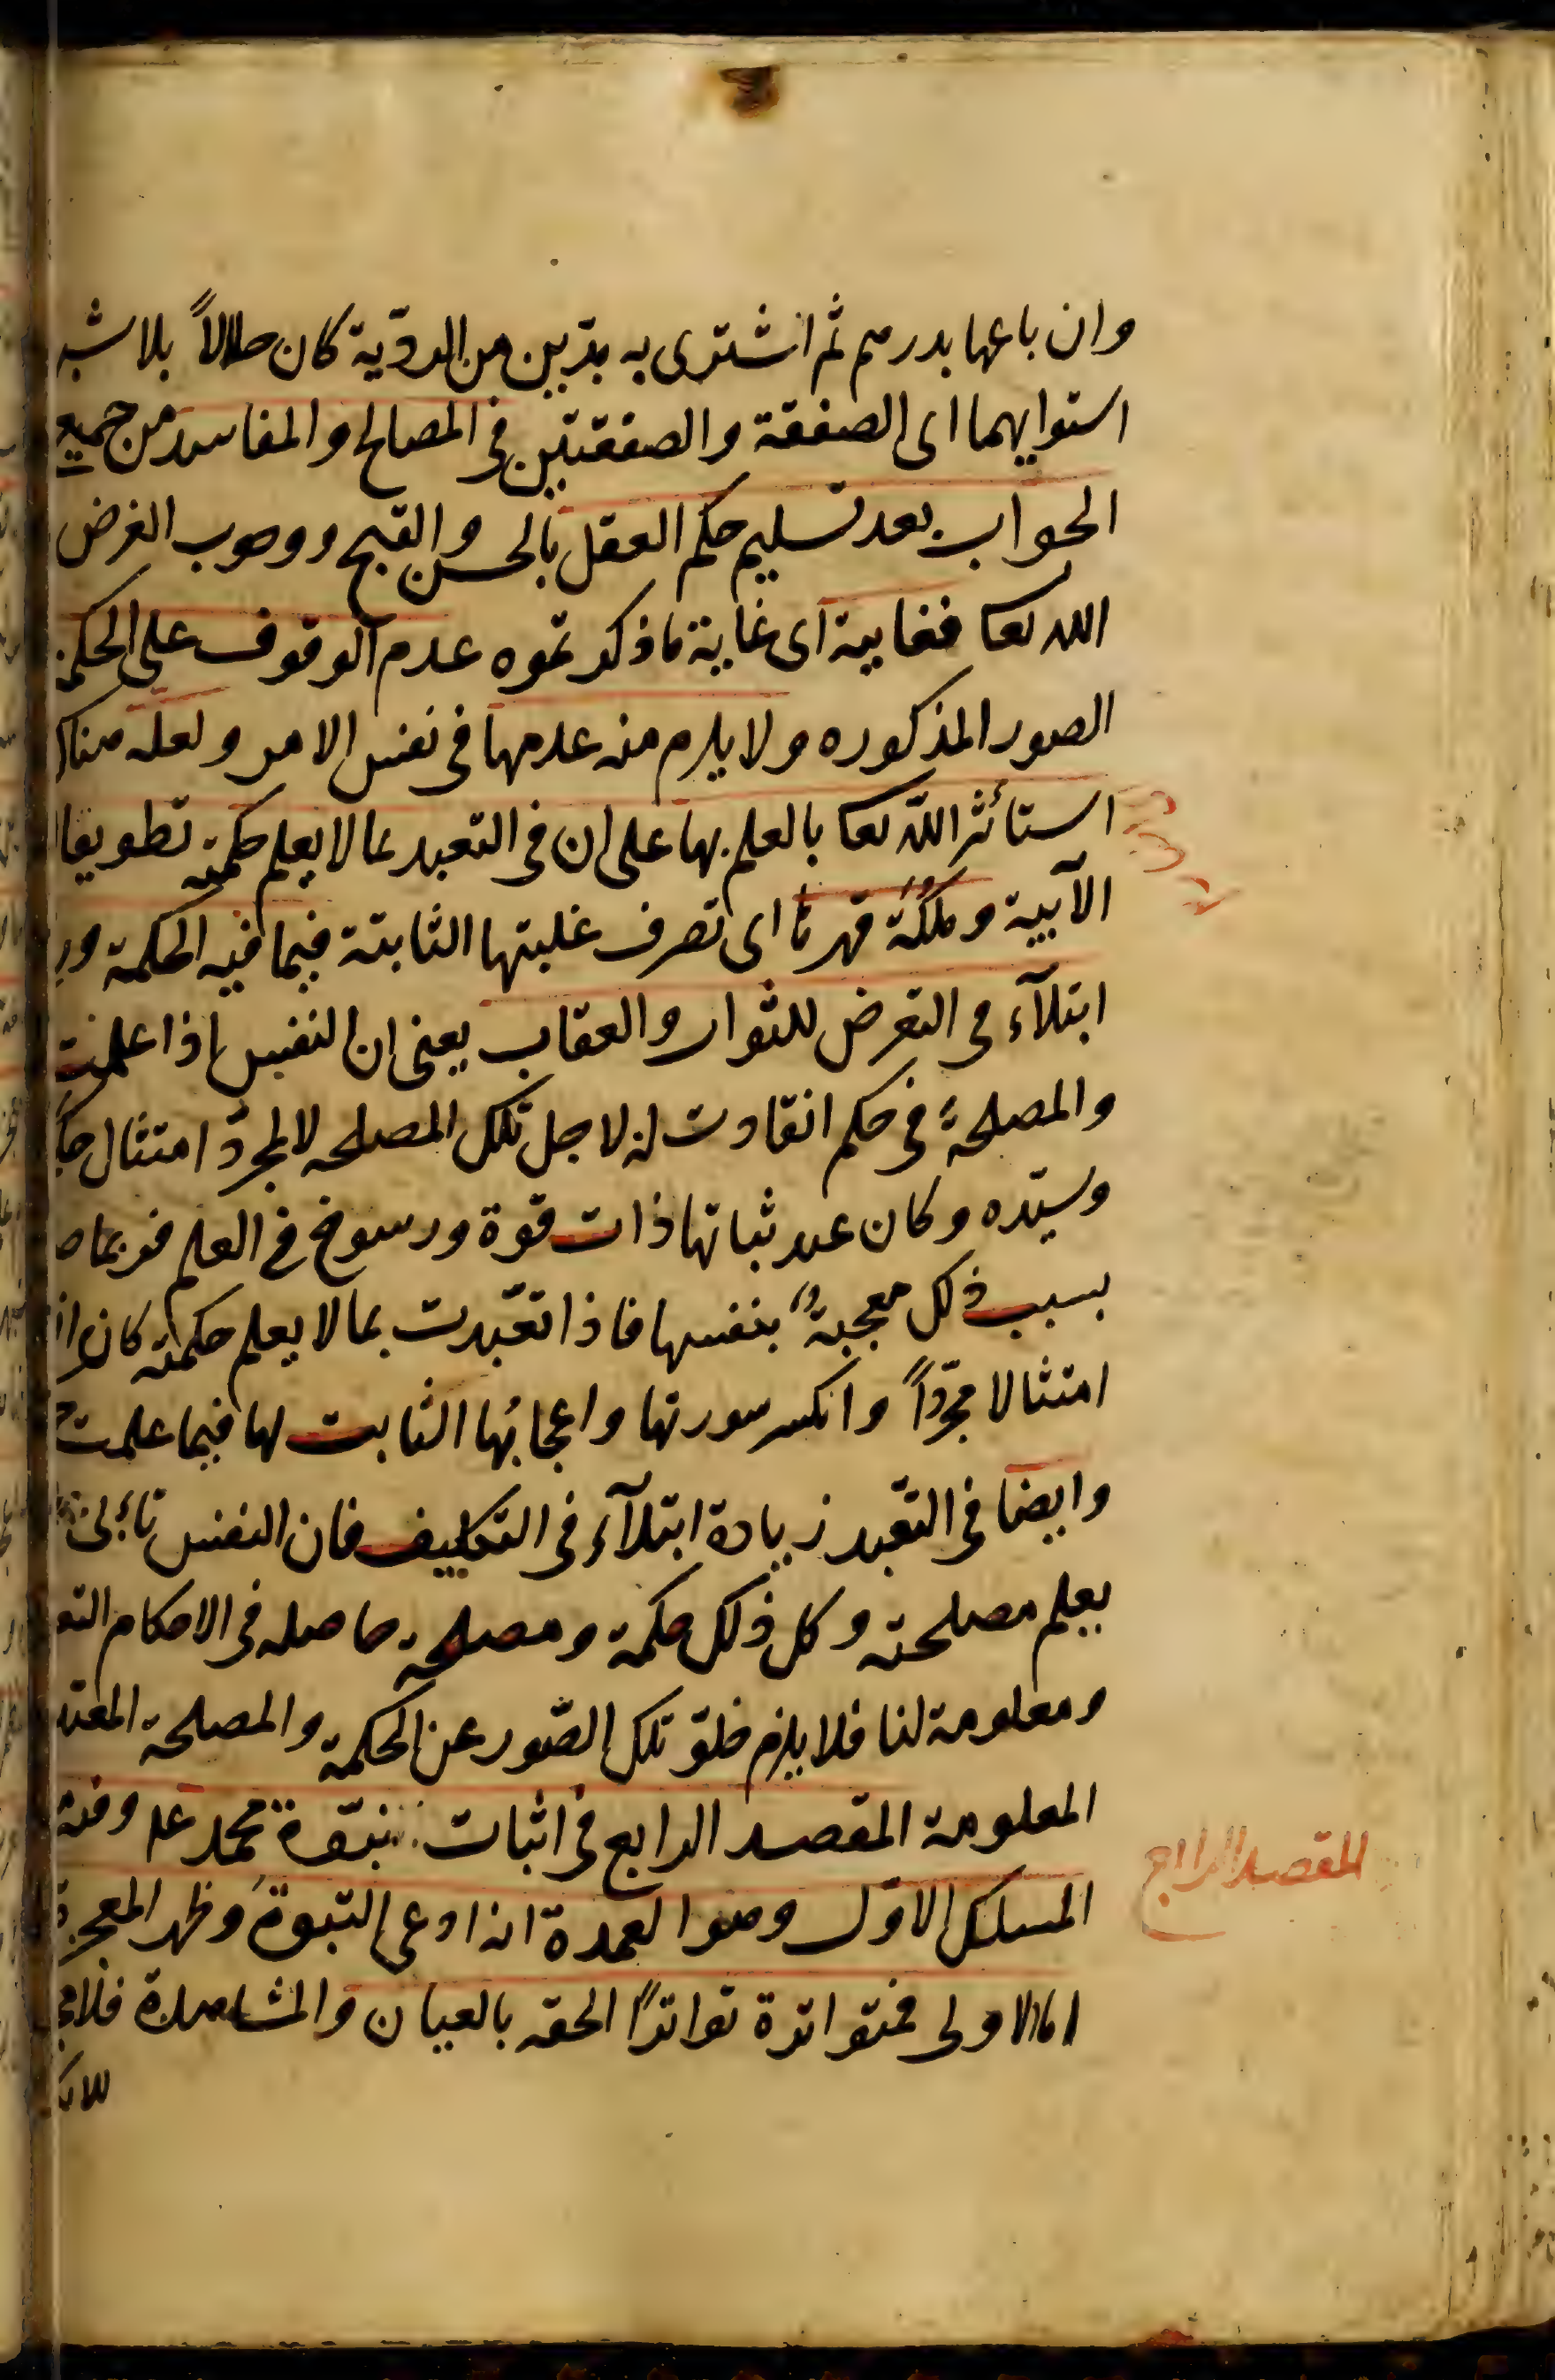 وان باعها بدرهم ثم اشترى به مدّين من الرديّة كان حلالاً بلا شبه
استوايهما اى الصفقة والصفقتين فى المصالح والمفاسد من جميع
الجواب بعد تسليم حكم العقل بالحسن والقبح ووجوب الغرض
الله تعا فغايته اى غاية ما ذكرتموه عدم الوقوف على الحكمة
الصور المذكوره ولا يلزم منه عدمها فى نفس الامر ولعله هناك
استأثر الله تعا بالعلم بها على ان فى التعبد بما لا يعلم حكمته تطويعا
الآبية وملكة قهرها اى تصرف غلبتها الثابتة فيما فيه الحكمة
ابتلآء فى التعرض للثواب والعقاب يعنى ان النفس اذا علمت
والمصلحة فى حكم انقادت له لاجل تلك المصلحه لا لمجرد امتثال
وسيّده وكان عند ثباتها ذات قوة ورسوخ فى العلم فربما
بسبب ذلك معجبة بنفسها فاذا تعبّدت بما لا يعلم حكمته كان
امتثالا مجرّداً وانكسر سورتها واعجابُها الثابت لها فيما علمت
وايضا فى التعبد زيادة ابتلآء فى التكليف فان النفس تأبى
يعلم مصلحته وكل ذلك حكمة ومصلحة حاصله فى الاحكام التعـ
ومعلومة لنا فلا يلزم خلوّ تلك الصّور عن الحكمة والمصلحة المعتد
المعلومة المقصد الرابع فى اثبات نبوّة محمد عم وفيه
المسلك الاوّل وهو العمدة انه ادعى النبوة وظهر المعجزة
اما الاولى فمتواترة تواتراً الحقه بالعيان والمشاهدة فلا
المقصد الرابع